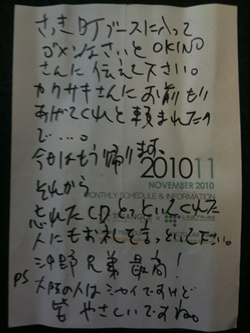 さっきDJブースに入って
ゴメンなさいとOKINO
さんに伝えて下さい。
カクサキさんにお前もり
あげてくれと頼まれたの
で...。
今日はもう帰ります。
2010 11
NOVEMBER 2010
MONTHLY SCHEDULE & INFORMATION
それから
忘れたCDとっといてくれた
人にもお礼を言っといて下さい。
沖野兄弟最高!
PS 大阪の人はシャイですけど
皆やさしいですね。